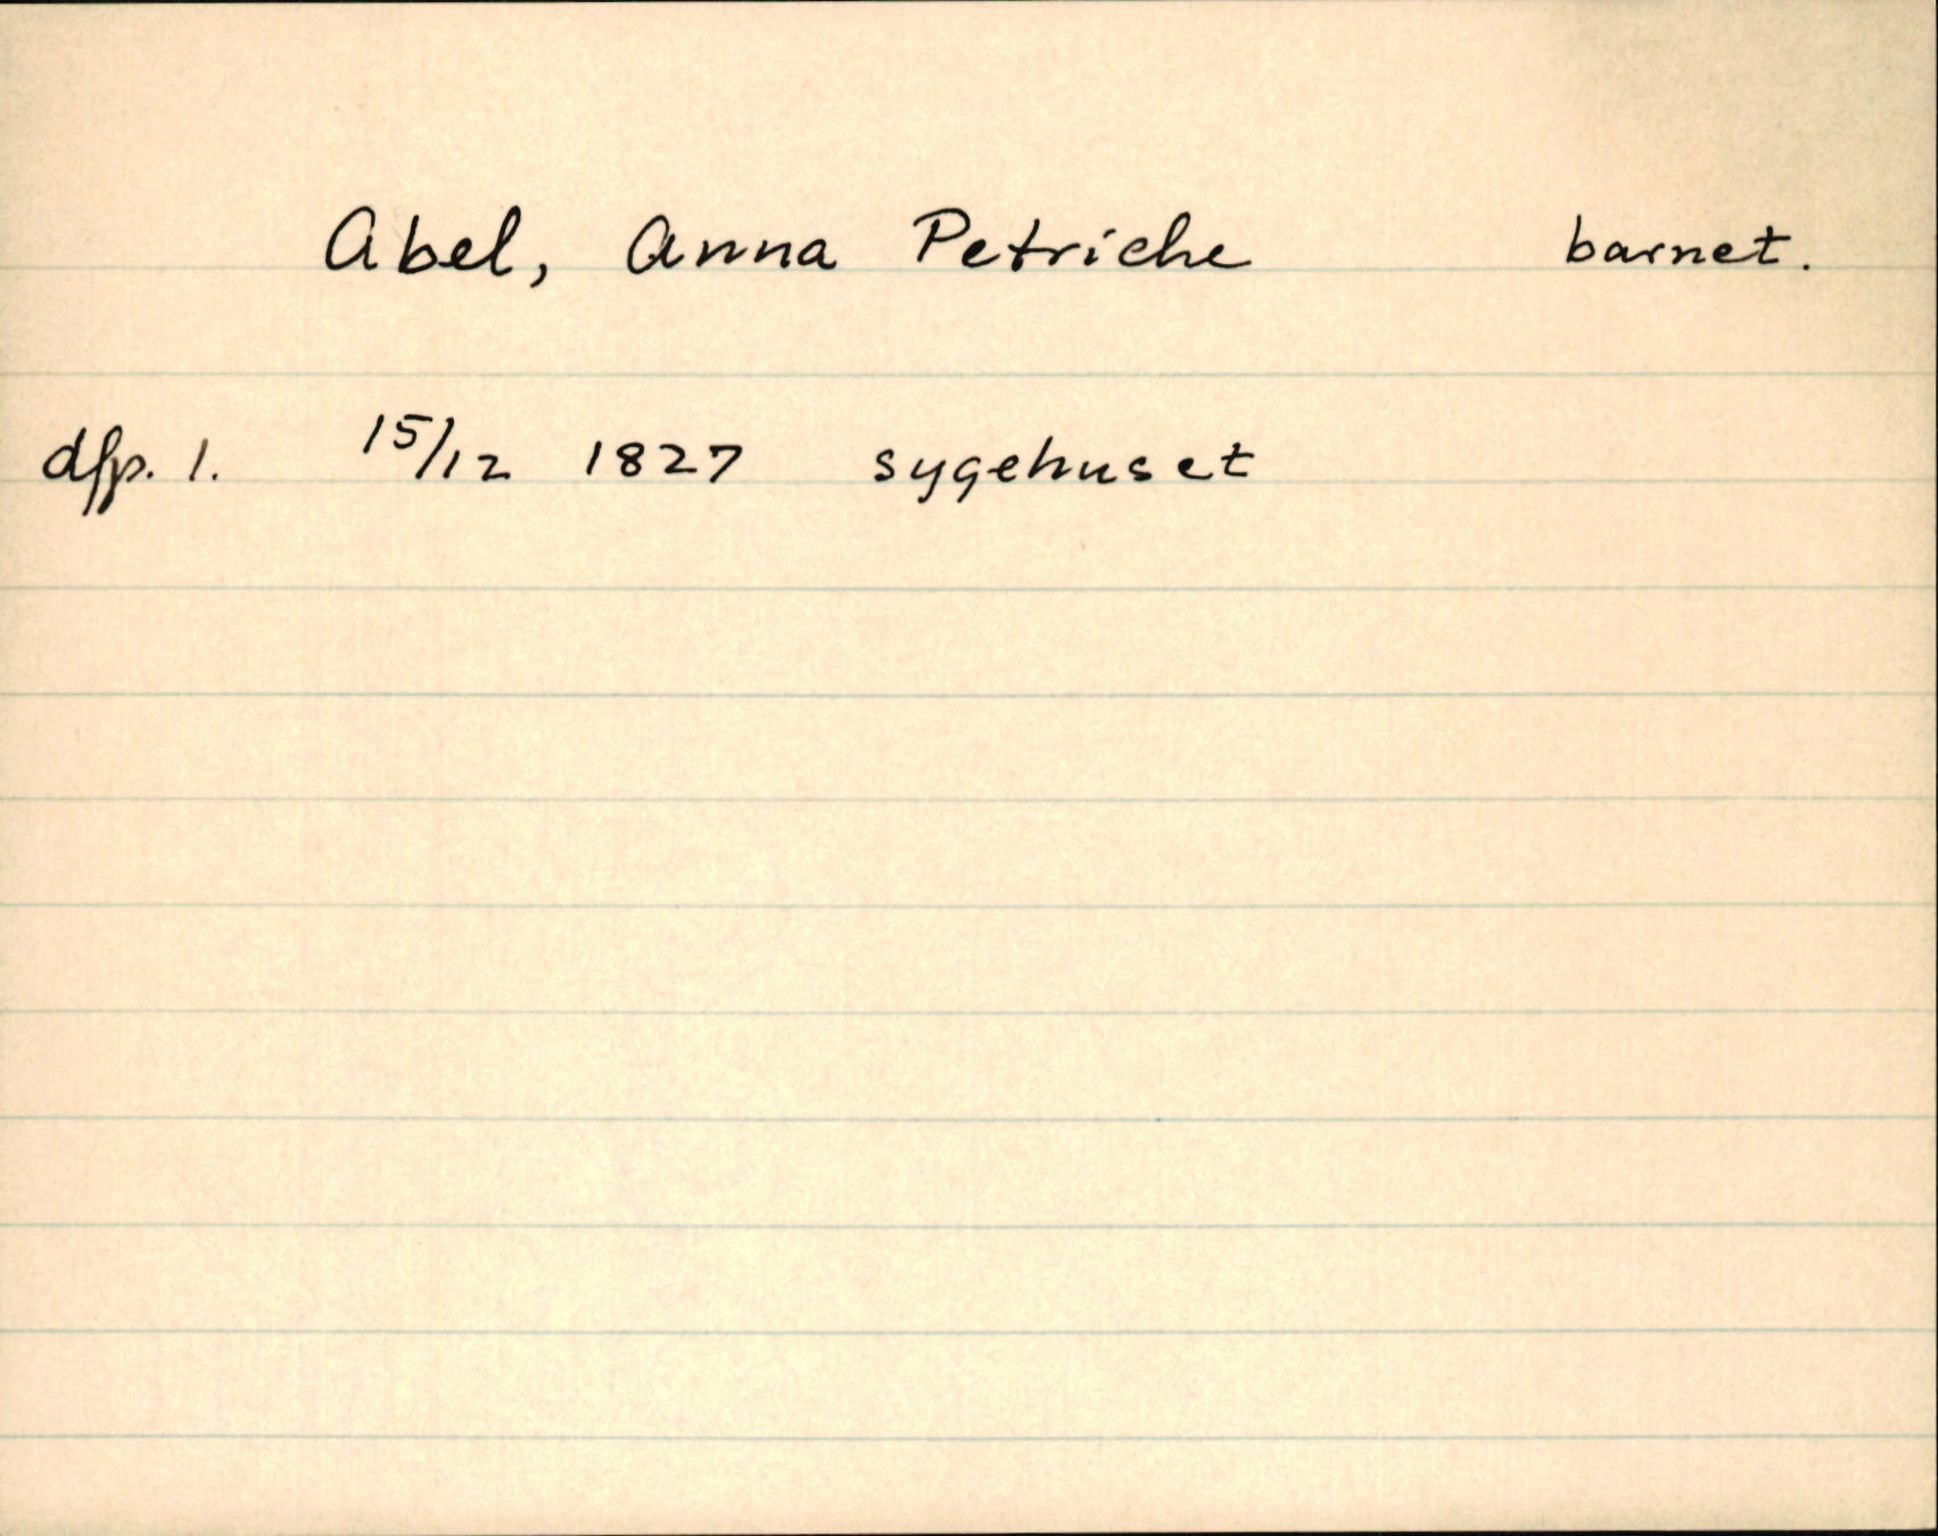 Abel, Anna Petriche barnet.
dfp. 1. 15/12 1827 sygehuset